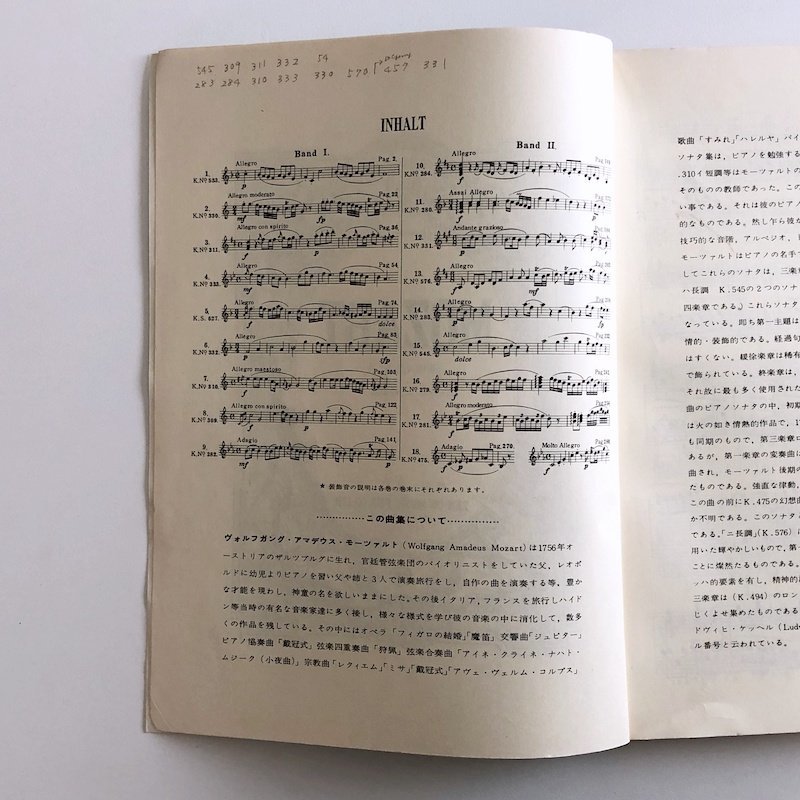 545 309 311 332 54
283 284 310 333 330 570 457 331
INHALT
Band I.
Band II.
Allegro Pag. 2.
1. K.Nº 533.
p
Allegro moderato Pag. 22
2. K.Nº 330.
mf fp
Allegro con spirito Pag. 36
3. K.Nº 311.
f p
Allegro Pag. 54
4. K.Nº 333.
mf
Allegro Pag. 74
5. K.S. 627.
f dolce
Allegro Pag. 83
6. K.Nº 332.
p sfp
Allegro maestoso Pag. 103
7. K.Nº 310.
f
Allegro con spirito Pag. 122
8. K.Nº 309.
f p
Adagio Pag. 141
9. K.Nº 282.
f p
Allegro
10. K.Nº 284.
f p
Assai Allegro
11. K.Nº 280.
f p
Andante grazioso
12. K.Nº 331.
p
Allegro
13. K.Nº 576.
f mf
Allegro
14. K.Nº 283.
p fp
Allegro
15. K.Nº 545.
dolce
Allegro
16. K.Nº 279.
f mf
Allegro moderato
17. K.Nº 281.
f
Adagio Pag. 270.
18. K.Nº 475.
f p
Molto Allegro
f p
★ 装飾音の説明は各巻の巻末にそれぞれあります。
この曲集について
ヴォルフガング・アマデウス・モーツァルト(Wolfgang Amadeus Mozart)は1756年オ
ーストリアのザルツブルグに生れ,官廷管弦楽団のバイオリニストをしていた父,レオポ
ルドに幼児よりピアノを習い父や姉と3人で演奏旅行をし,自作の曲を演奏する等,豊か
な才能を現わし,神童の名を欲しいままにした。その後イタリア,フランスを旅行しハイド
ン等当時の有名な音楽家達に多く接し,様々な様式を学び彼の音楽の中に消化して,数多
くの作品を残している。その中にはオペラ「フィガロの結婚」「魔笛」交響曲「ジュピター」
ピアノ協奏曲「戴冠式」弦楽四重奏曲「狩猟」弦楽合奏曲「アイネ・クライネ・ナハト・
ムジーク(小夜曲)」宗教曲「レクィエム」「ミサ」「戴冠式」「アヴェ・ヴェルム・コルプス」
歌曲「すみれ」「ハレルヤ」バイ
ソナタ集は,ピアノを勉強する
.310イ短調等はモーツァルトの
そのものの教師であった。この
い事である。それは彼のピアノ
的なものである。然し乍ら彼な
技巧的な音階,アルペジオ,
モーツァルトはピアノの名手で
してこれらのソナタは,三楽
ハ長調 K.545の2つのソナ
四楽章である。)これらソナタ
なっている。即ち第一主題は
情的・装飾的である。経過句
はすくない。緩徐楽章は稀有
で飾られている。終楽章は,
それ故に最も多く使用された
曲のピアノソナタの中,初期
は火の如き情熱的作品で,1
も同期のもので,第三楽章に
あるが,第一楽章の変奏曲に
曲され,モーツァルト後期の
たものである。強直な律動,
この曲の前にK.475の幻想曲
か不明である。このソナタ
である。「ニ長調」(K.576)に
用いた輝やかしいもので,第一
ことに燦然たるものである。
ッハ的要素を有し,精神的
三楽章は(K.494)のロン
じくよせ集めたものである
ドヴィヒ・ケッヘル(Lud
ル番号と云われている。